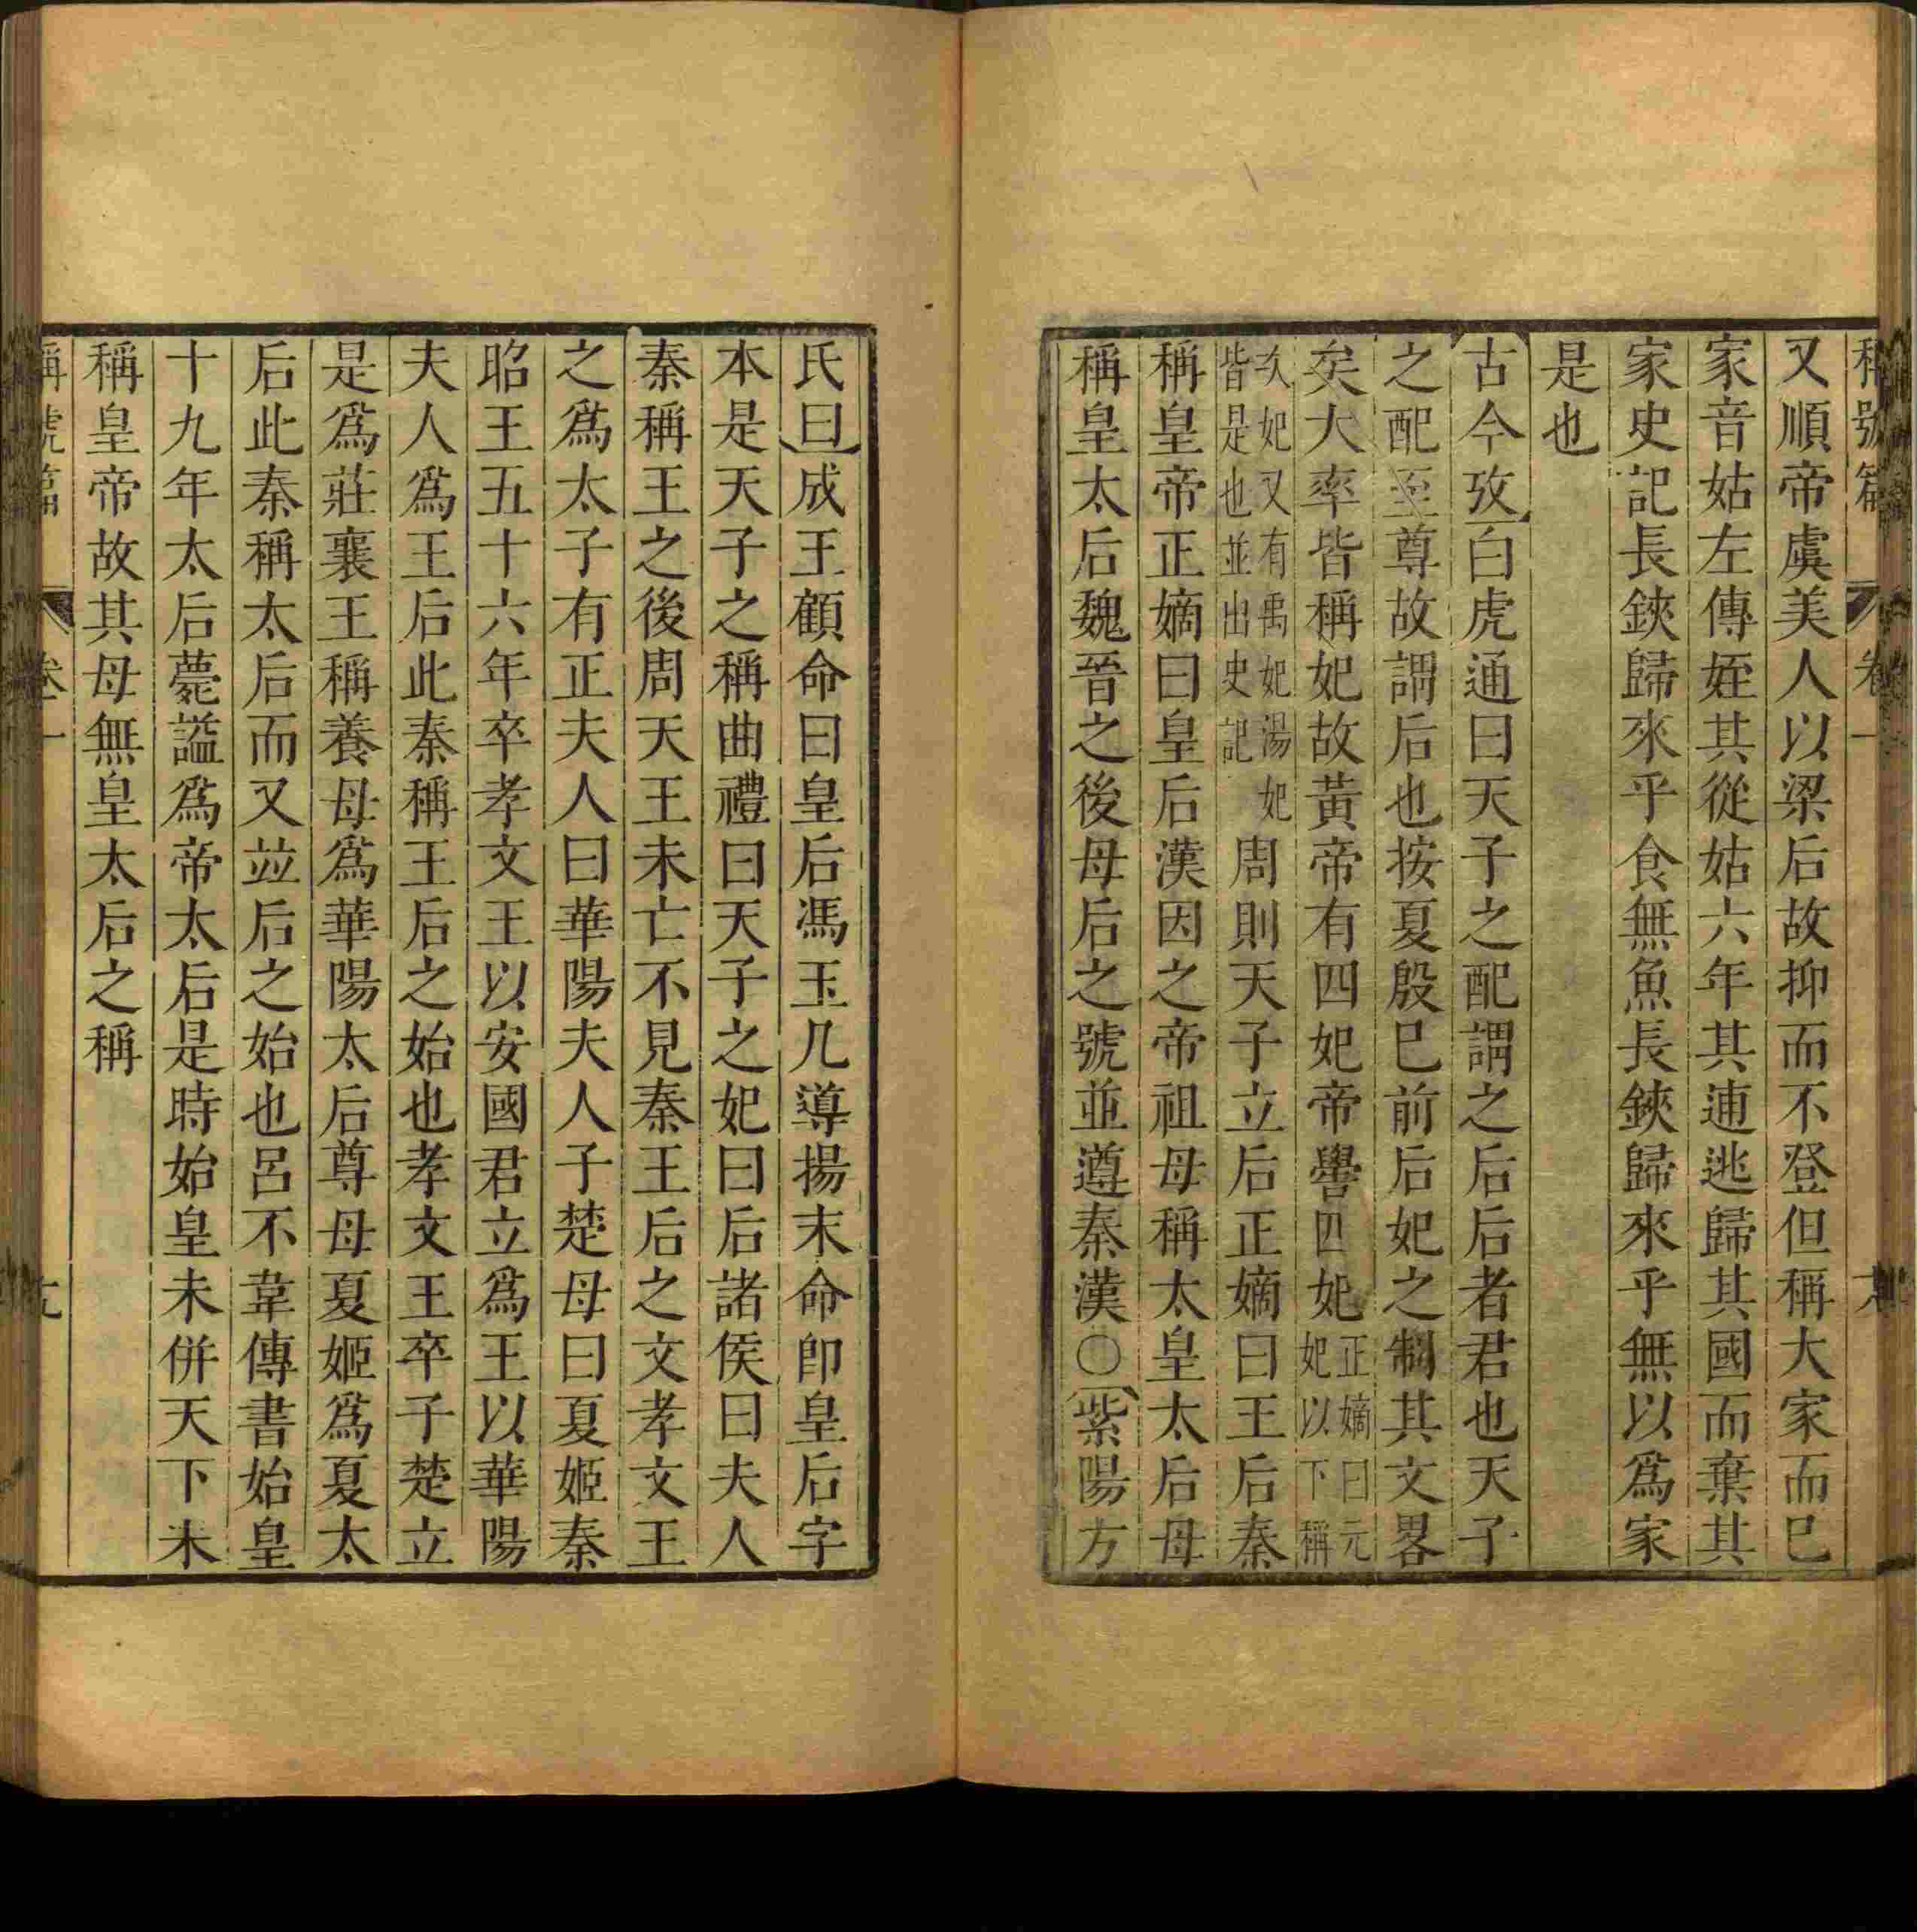 稱號篇 卷一
又順帝虞美人以梁后故抑而不登但稱大家而已
家音姑左傳姪其從姑六年其逋逃歸其國而棄其
家史記長鋏歸來乎食無魚長鋏歸來乎無以爲家
是也
古今攷白虎通曰天子之配謂之后后者君也天子
之配至尊故謂后也按夏殷已前后妃之制其文畧
矣大率皆稱妃故黃帝有四妃帝嚳四妃正嫡曰元妃以下稱
次妃又有禹妃湯妃皆是也並出史記周則天子立后正嫡曰王后秦
稱皇帝正嫡曰皇后漢因之帝祖母稱太皇太后母
稱皇太后魏晉之後母后之號並遵秦漢○紫陽方
氏曰成王顧命曰皇后馮玉几導揚末命即皇后字
本是天子之稱曲禮曰天子之妃曰后諸侯曰夫人
秦稱王之後周天王未亡不見秦王后之文孝文王
之爲太子有正夫人曰華陽夫人子楚母曰夏姬秦
昭王五十六年卒孝文王以安國君立爲王以華陽
夫人爲王后此秦稱王后之始也孝文王卒子楚立
是爲莊襄王稱養母爲華陽太后尊母夏姬爲夏太
后此秦稱太后而又竝后之始也呂不韋傳書始皇
十九年太后薨謚爲帝太后是時始皇未併天下未
稱皇帝故其母無皇太后之稱
稱號篇 卷一